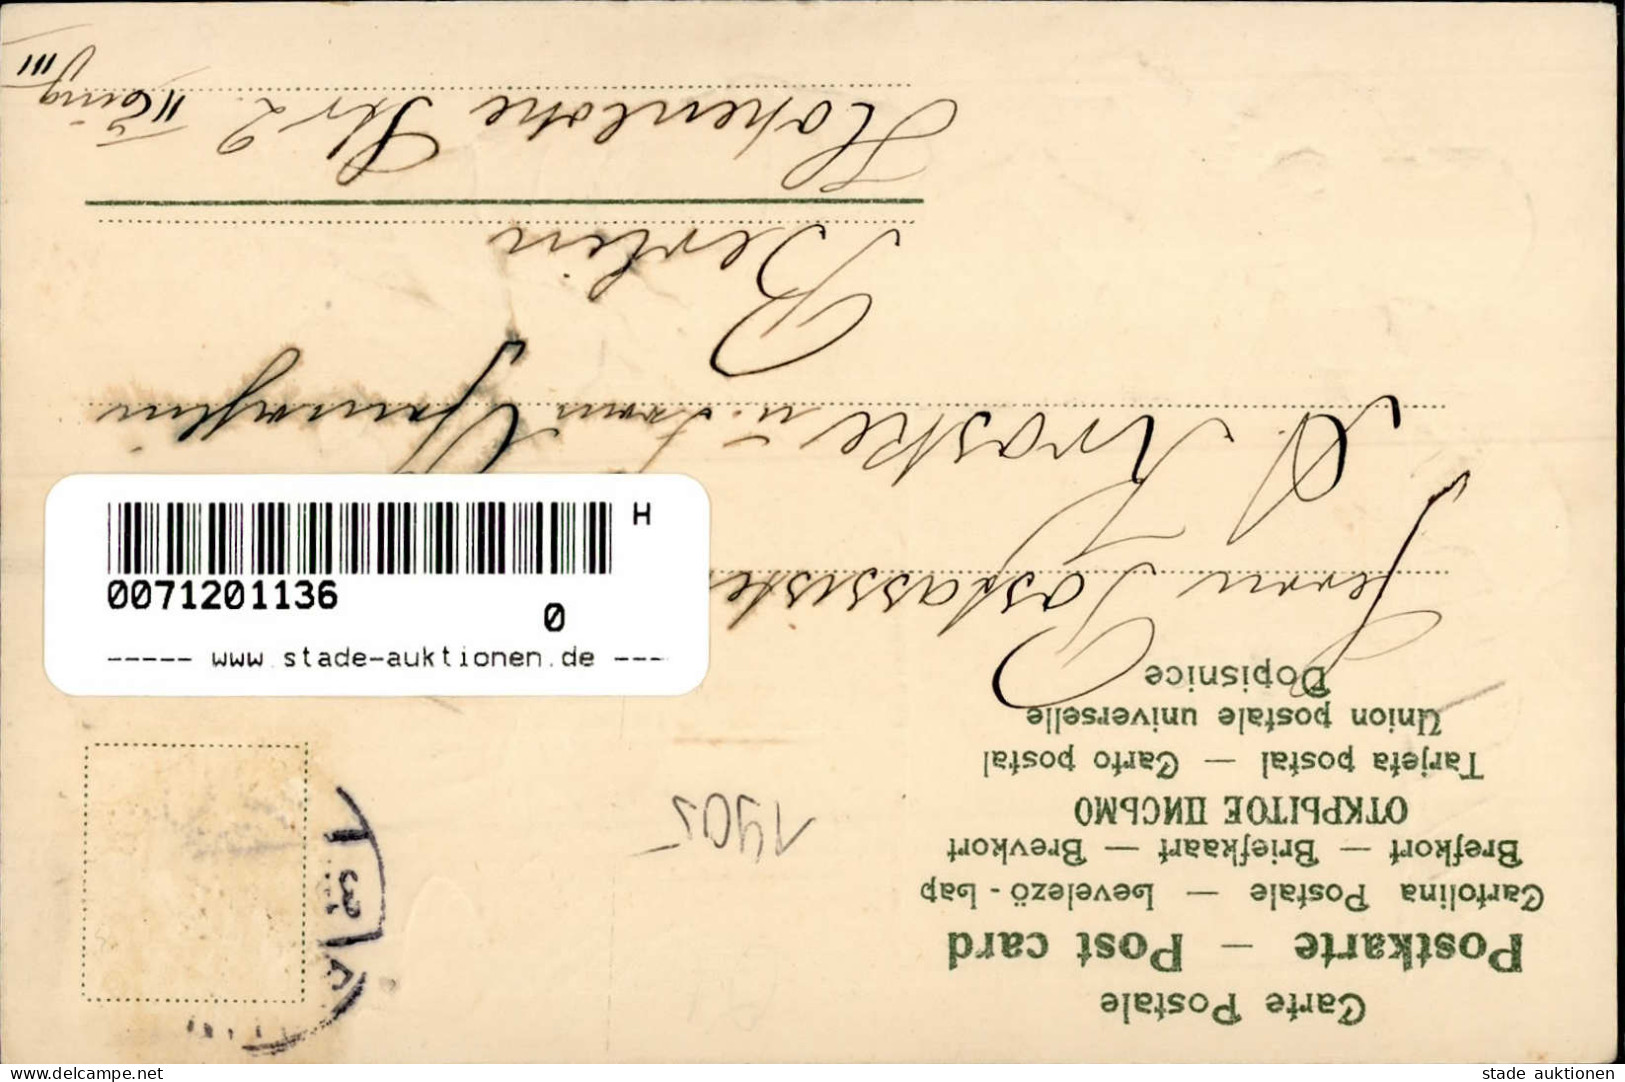 Carte Postale
Postkarte – Post card
Cartolina Postale — Levelező-Lap
Brefkort — Briefkaart — Brevkort
ОТКРЫТОЕ ПИСЬМО
Tarjeta postal — Carto postal
Union postale universelle
Dopisnice
1905
Herrn Postassiste
A. Kroske u. Frau
Berlin
Hohenlohe Str 2
III
H
0071201136
0
----- www.stade-auktionen.de ----
www.delcampe.net
stade auktionen